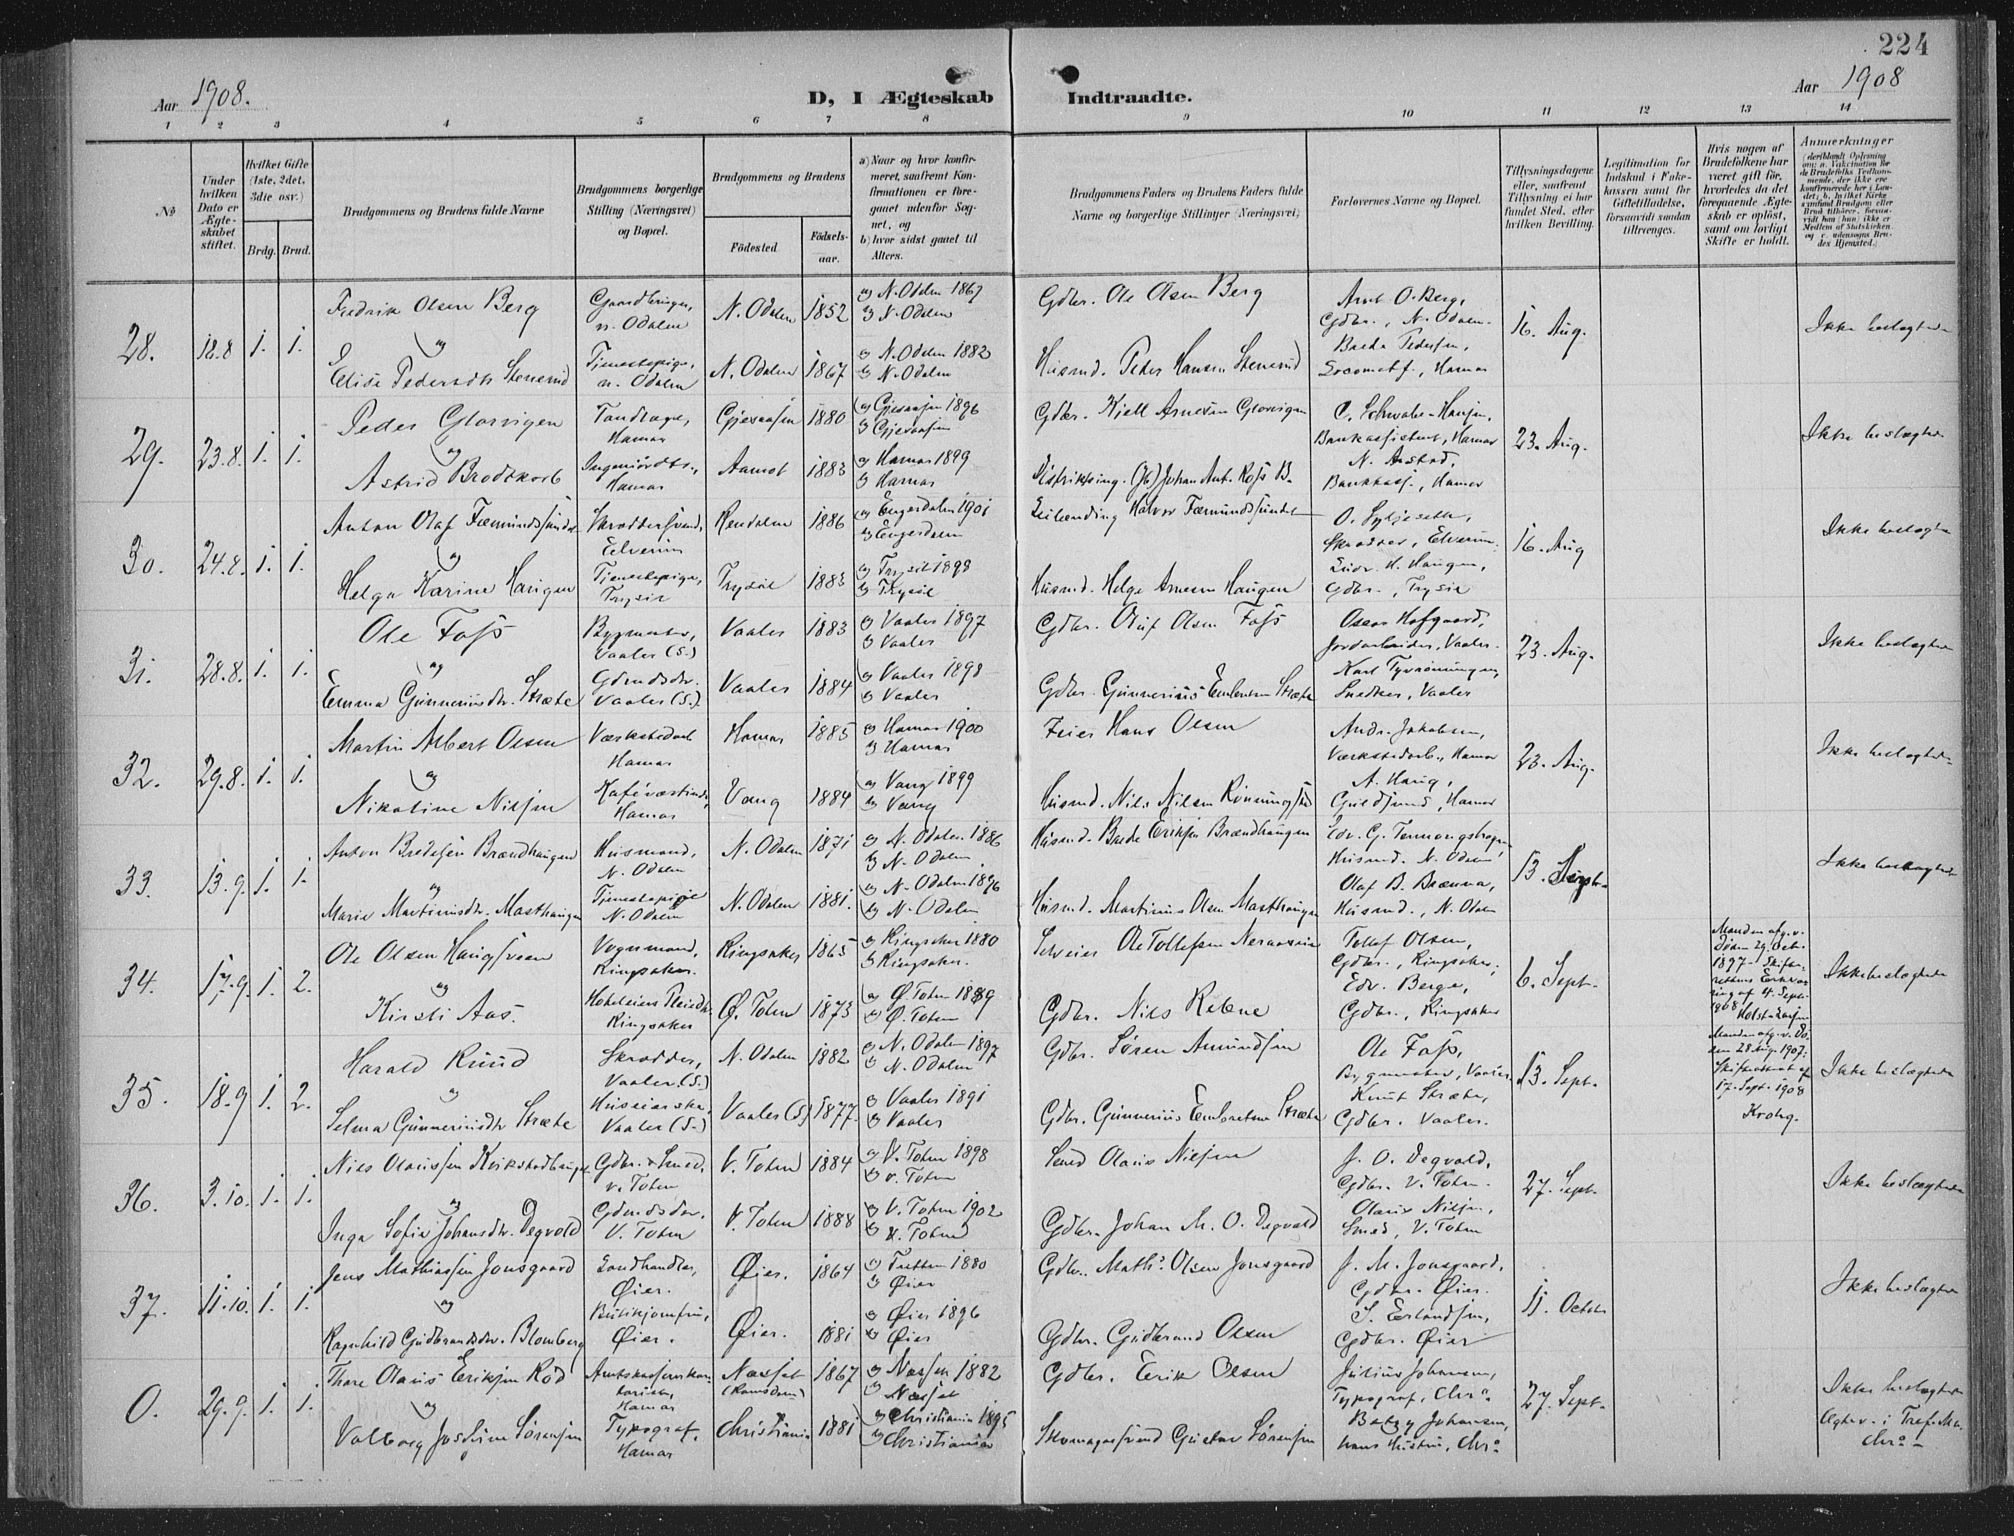 224
Aar 1908.
D, I Ægteskab Indtraadte.
Aar 1908
1 2 3 4 5 6 7 8 9 10 11 12 13 14
No
Under hvilken Dato er Ægteskabet stiftet.
Hvilket Gifte (1ste, 2det, 3die osv.)
Brdg. Brud.
Brudgommens og Brudens fulde Navne
Brudgommens borgerlige Stilling (Næringsvei) og Bopæl.
Brudgommens og Brudens
Fødested. Fødselsaar.
a) Naar og hvor konfirmeret, saafremt Konfirmationen er foregaaet udenfor Sognet, og
b) hvor sidst gaaet til Alters.
Brudgommens Faders og Brudens Faders fulde Navne og borgerlige Stillinger (Næringsvei)
Forlovernes Navne og Bopæl.
Tillysningsdagene eller, saafremt Tillysning ei har fundet Sted, efter hvilken Bevilling.
Legitimation for Indskud i Enkekassen samt for Giftetilladelse, forsaavidt saadan tiltrænges.
Hvis nogen af Brudefolkene har været gift før, hvorledes da det foregaaende Ægteskab er opløst, samt om lovligt Skifte er holdt.
Anmerkninger
28. 18.8 1. 1.
Fredrik Olsen Berg
Gaardbruger, N. Odalen
N. Odalen 1852
a) N. Odalen 1867
b) N. Odalen
Gdbr. Ole Olsen Berg
Arnt O. Berg,
Gdbr., N. Odalen.
16. Aug.
Ikke beslægtede
og
Elise Pedersdtr Stenerud
Tjenestepige, N. Odalen
N. Odalen 1867
a) N. Odalen 1882
b) N. Odalen
Husmd. Peder Hansen Stenerud
Brede Pedersen,
Locomotf., Hamar
29. 23.8. 1. 1.
Peder Glorvigen
Tandlæge, Hamar
Gjesaasen 1880
a) Gjesaasen 1896
b) Gjesaasen
Gdbr. Kjell Arnesen Glorvigen
C. Schwabe-Hansen,
Bankassistent, Hamar
23. Aug.
Ikke beslægtede
og
Astrid Brodtkorb
Ingeniørdtr., Hamar
Aamot 1883
a) Hamar 1899
b) Hamar
Distriktsing. Johan Ant. Ross B.
N. Anstad,
Bankkass., Hamar
30. 24.8. 1. 1.
Anton Olaf Fæmundssundet
Skræddersvend, Elverum
Rendalen 1886
a) Engerdalen 1901
b) Engerdalen
Leilænding Halvor Fæmundssundet
O. Syljeseth,
Skrædder, Elverum.
16. Aug
Ikke beslægtede
og
Helga Karine Haugen
Tjenestepige, Trysil
Trysil 1883
a) Trysil 1898
b) Trysil
Husmd. Helge Arnesen Haugen
H. Haugen,
Gdbr., Trysil
31. 28.8. 1. 1.
Ole Foss
Bygmester, Vaaler (S.)
Vaaler 1883
a) Vaaler 1897
b) Vaaler
Gdbr. Oluf Olsen Foss
Oscar Hofgaard,
Jordarbeider, Vaaler.
23. Aug.
Ikke beslægtede
og
Emma Gunneriusdtr. Stræte
Gdmdsdtr. Vaaler (S.)
Vaaler 1884
a) Vaaler 1898
b) Vaaler
Gdbr. Gunnerius Embretsen Stræte
Karl Tyvrønningen,
Snedker, Vaaler
32. 29.8. 1. 1.
Martin Albert Olsen
Værkstedarb. Hamar
Hamar 1885
a) Hamar 1900
b) Hamar
Feier Hans Olsen
Andr. Jakobsen,
Værkstedarb., Hamar
23. Aug.
Ikke beslægtede
og
Nikoline Nilsen
Kaféværtinde, Hamar
Vang 1884
a) Vang 1899
b) Vang
Husmd. Nils Nilsen
A. Haug,
Guldsmed, Hamar
33. 13.9. 1. 1.
Anton Bredesen Brændhaugen
Husmand, N. Odalen
N. Odalen 1871
a) N. Odalen 1886
b) N. Odalen
Husmd. Brede Eriksen Brændhaugen
Husmd. N. Odalen
13. Sept.
Ikke beslægtede
og
Marie Martinusdtr. Masthaugen
Tjenestepige N. Odalen
N. Odalen 1881.
a) N. Odalen 1896
b) N. Odalen
Husmd. Martinus Olsen Masthaugen
Olaf B. Brænna,
Husmd., N. Odalen
34. 17.9. 1. 2.
Ole Olsen Haugsveen
Vognmand, Ringsaker.
Ringsaker 1865
a) Ringsaker 1880
b) Ringsaker.
Selveier Ole Tollefsen
Tollef Olsen,
Gdbr., Ringsaker,
6. Sept.
Manden afg. v. Døden 29. Octr. 1897 - Skifterettens Erklæring af 4. Sept. 1908
Ikke beslægtede
og
Kirsti Aas.
Ringsaker
Ø. Toten 1873
a) Ø. Toten 1889
b) Ø. Toten
Gdbr. Nils Rebne
Edv. Berge,
Gdbr., Ringsaker
35. 18.9 1. 2.
Harald Ruud
Skrædder, Vaaler (S.)
N. Odalen 1882
a) N. Odalen 1897
b) N. Odalen
Gdbr. Søren Amundsen
Ole Foss,
Bygmester, Vaaler
13. Sept.
Manden afg. v. Døden 28 Aug. 1907. Skifteattest af 17. Sept. 1908 Krohg.
Ikke beslægtede
og
Selma Gunneriusdtr Stræte
Vaaler (S.)
Vaaler (S) 1877.
a) Vaaler 1891
b) Vaaler
Gdbr. Gunnerius Embretsen Stræte
Knut Stræte,
Gdbr. Vaaler.
36. 3.10. 1. 1.
Nils Olaussen Kvikstadhaugen
Gdbr. & Smed, V. Toten
V. Toten 1884
a) V. Toten 1898
b) V. Toten
Smed Olaus Nilsen
J. O. Degvold,
Gdbr. V. Toten.
27. Sept.
Ikke beslægtede
og
Inga Sofie Johansdtr. Degvold
Gdmdsdtr., V. Toten
V. Toten 1888
a) V. Toten 1902
b) V. Toten
Gdbr. Johan M. O. Degvold
Olaus Nilsen,
Smed, V. Toten
37. 11.10. 1. 1.
Jens Mathiassen Jonsgaard
Landhandler, Øier.
Øier. 1864
a) Tretten 1880
b) Øier
Gdbr. Maths. Olsen Jonsgaard
J. M. Jonsgaard,
Gdbr. Øier.
11. Octobr
Ikke beslægtede
og
Ragnhild Gudbrandsdtr. Blomberg
Butikjomfru, Øier.
Øier. 1881
a) Øier 1896
b) Øier
Gdbr. Gudbrand Olsen
S. Erlandsen,
Gdbr. Øier
0. 29.9. 1. 1.
Thore Olaus Eriksen Rød
Hamar
Næsset 1867
a) Næsset 1882
b) Næsset
Gdbr. Erik Olsen
Julius Johansen,
Typograf, Chra.
27. Sept.
Ikke beslægtede
og
Valborg Josefine Sørensen
Typograf, Hamar
Christiania 1881
a) Christiania 1895
b) Christiania
Skomagersvend Gustav Sørensen
Betzy Johansen,
hans Hustru, Chra.
Ægtev. i Tref. Me. Chra.